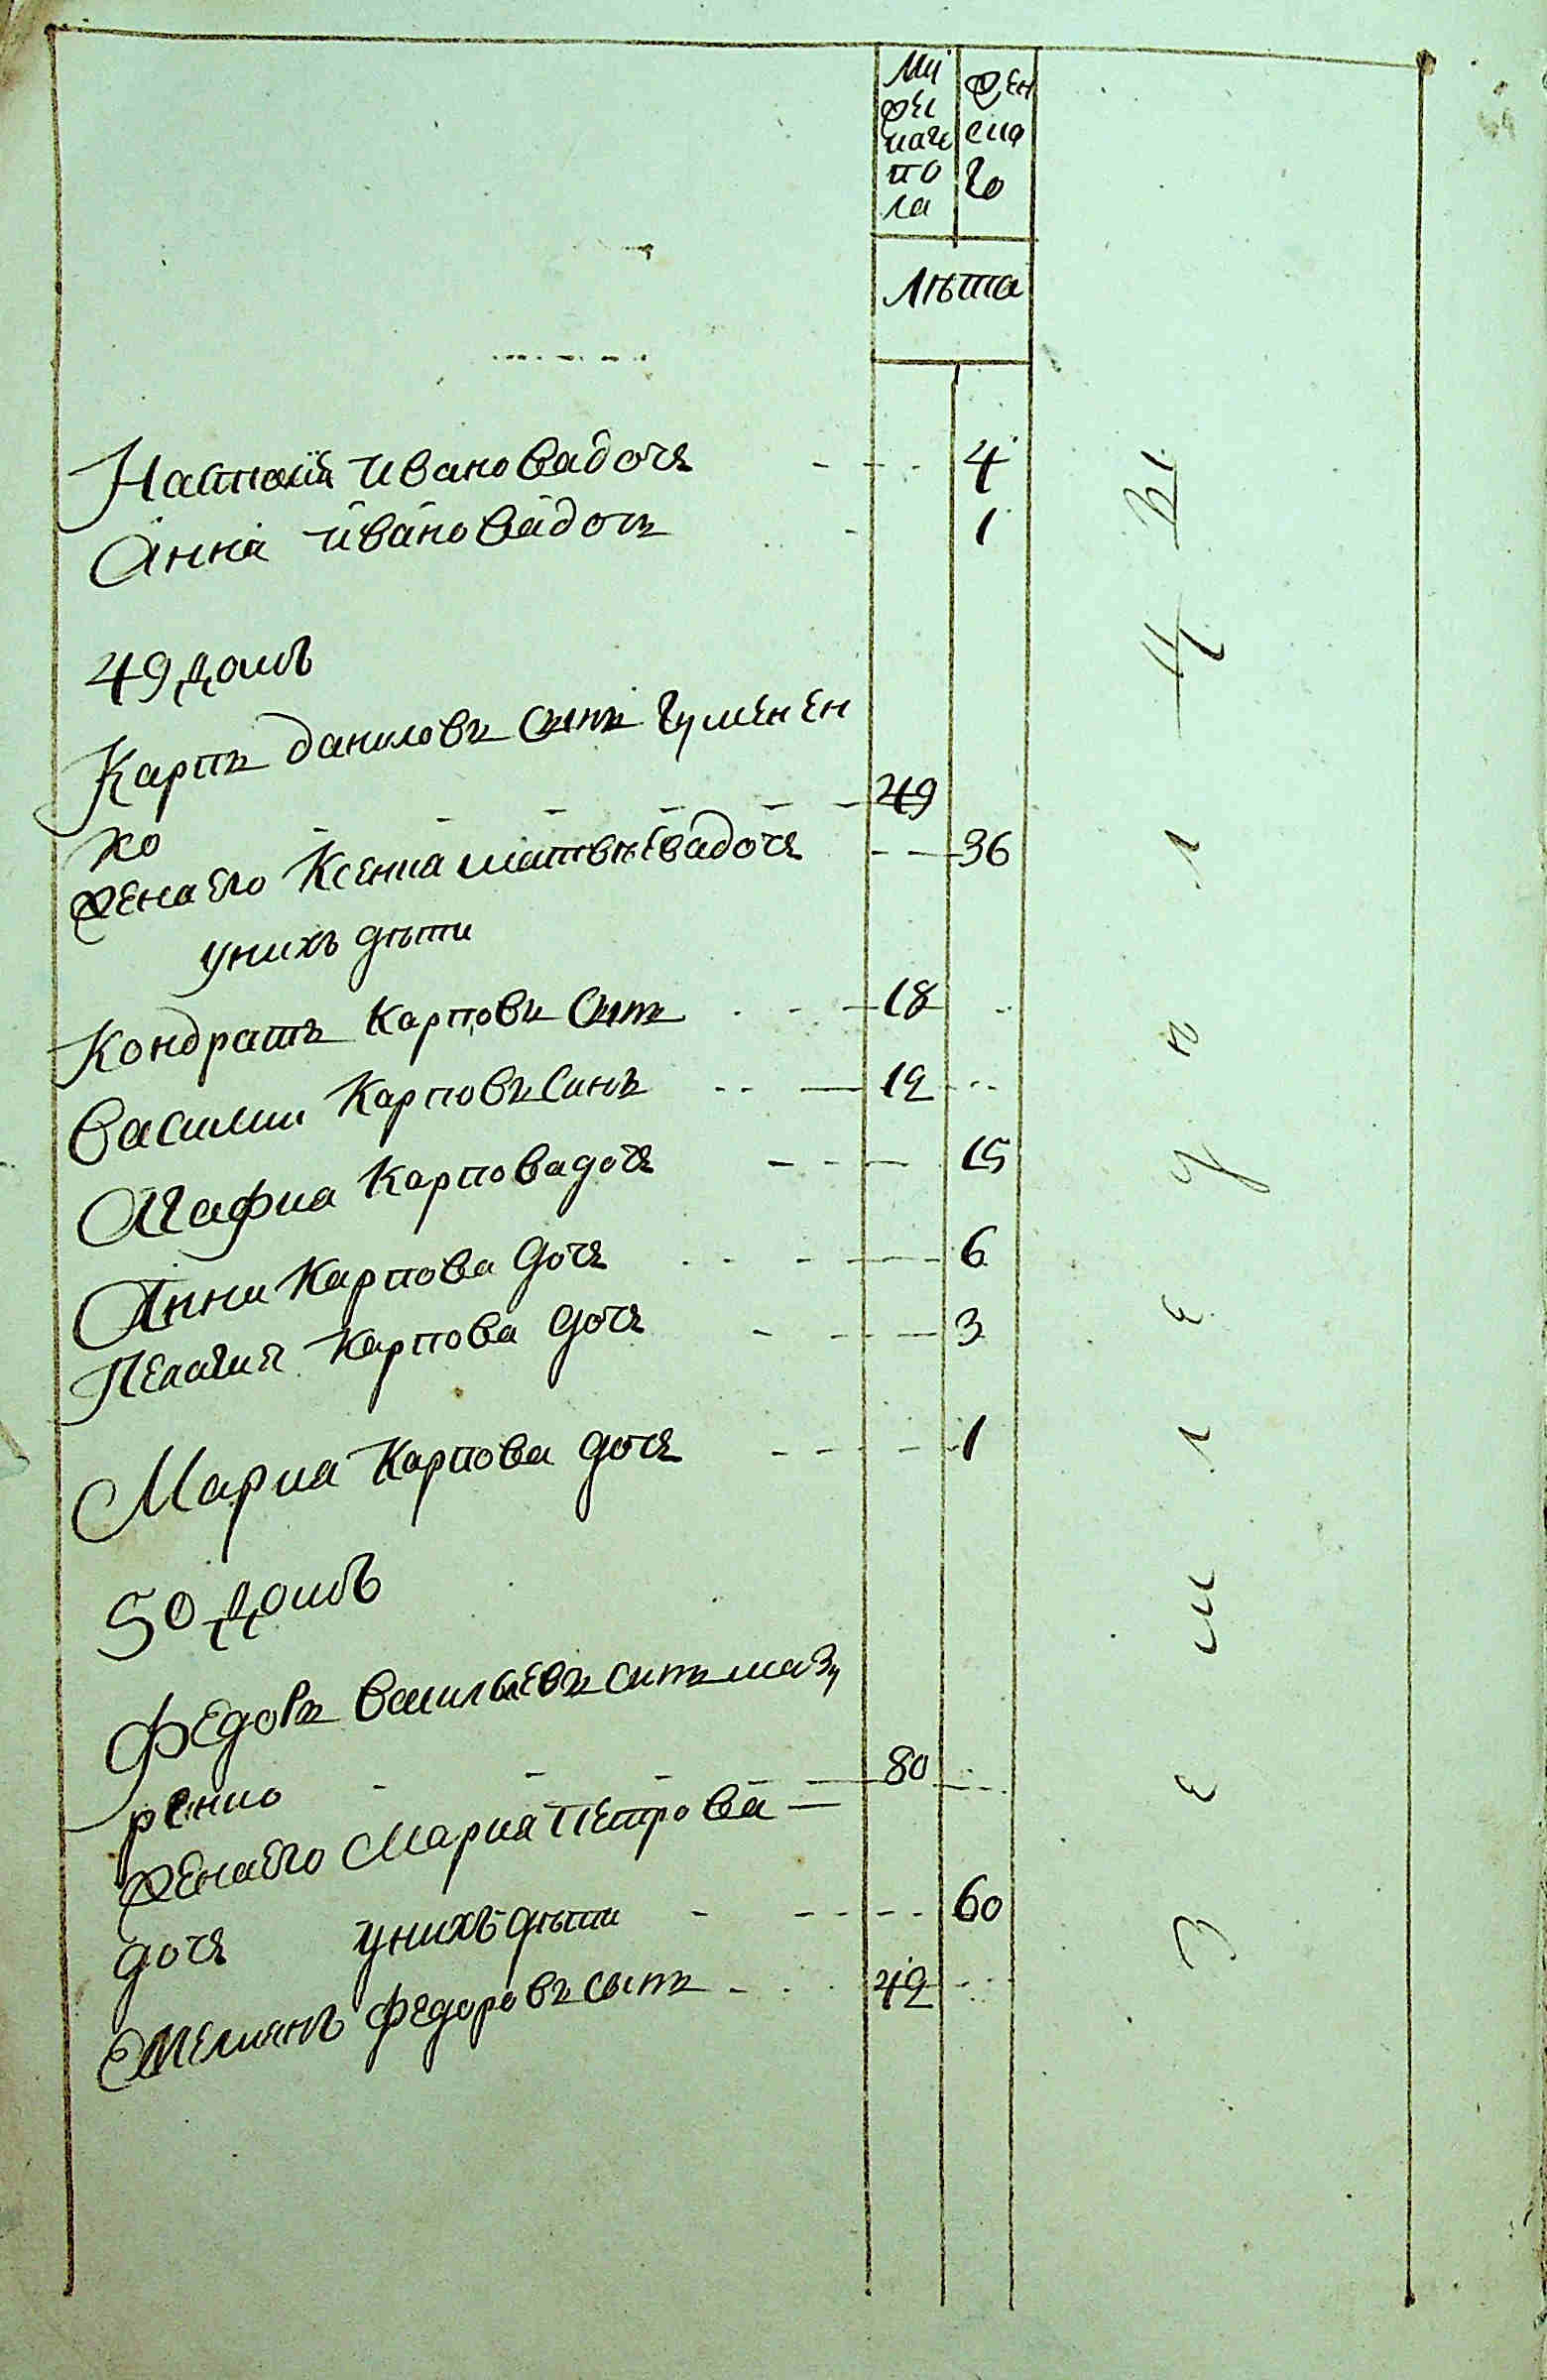 Му
жес
каго
по
ла
жен
ска
го
Лѣта
Наталия Ивановадочь 4
Анна Ивановадочь 1
49 домъ
Карпъ Даниловъ сынъ Гуменен
ко 49
жена его Ксения Матвѣевадочь 36
у нихъ дѣти
Кондратъ Карповъ сынъ 18
Василии Карповъ синъ 12
Агафиа Карпова дочь 15
Анна Карпова дочь 6
Пелагия Карпова дочь 3
Мариа Карпова дочь 1
50 домъ
Федоръ Васильевъ синъ Мазу
ренко 80
жена его Мариа Петрова
дочь у нихъ дѣти 60
Емелиянъ Федоровъ сынъ 42
Земледѣлцы